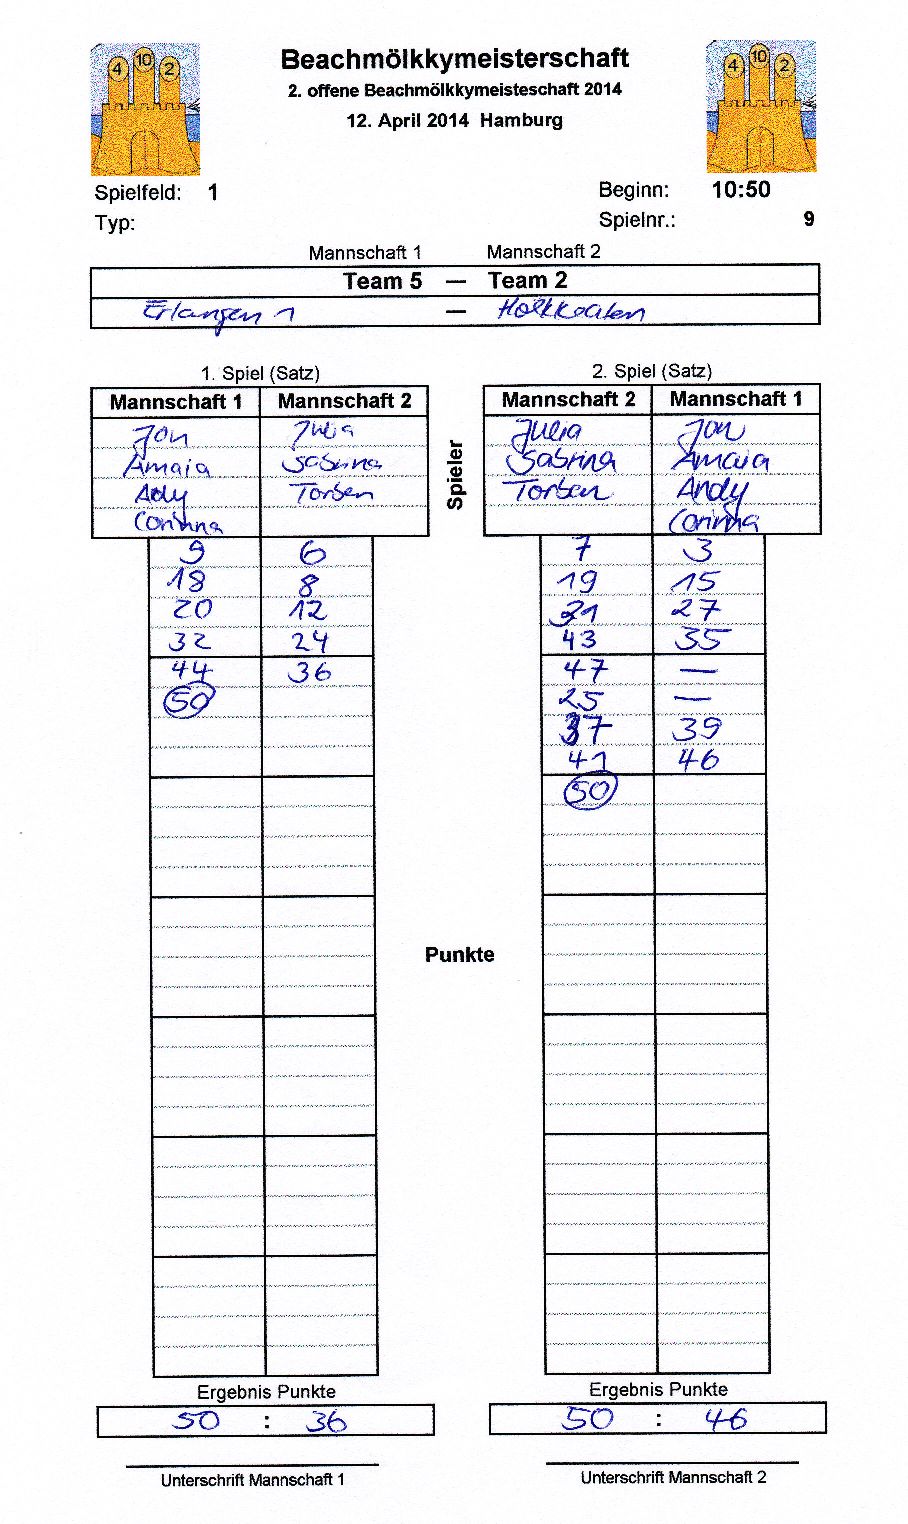 4 10 2
4 10 2
Beachmölkkymeisterschaft
2. offene Beachmölkkymeisteschaft 2014
12. April 2014 Hamburg
Spielfeld: 1
Beginn: 10:50
Typ:
Spielnr.: 9
Mannschaft 1 Mannschaft 2
Team 5 — Team 2
Erlangen 1 —
1. Spiel (Satz)
Mannschaft 1 Mannschaft 2
Jon Julia
Amaia Sabrina
Andy Torben
Corinna
9 6
18 8
20 12
32 24
44 36
50
Ergebnis Punkte
50 : 36
Unterschrift Mannschaft 1
Spieler
Punkte
2. Spiel (Satz)
Mannschaft 2 Mannschaft 1
Julia Jon
Sabrina Amaia
Torben Andy
Corinna
7 3
19 15
31 27
43 35
47 —
25 —
37 39
41 46
50
Ergebnis Punkte
50 : 46
Unterschrift Mannschaft 2